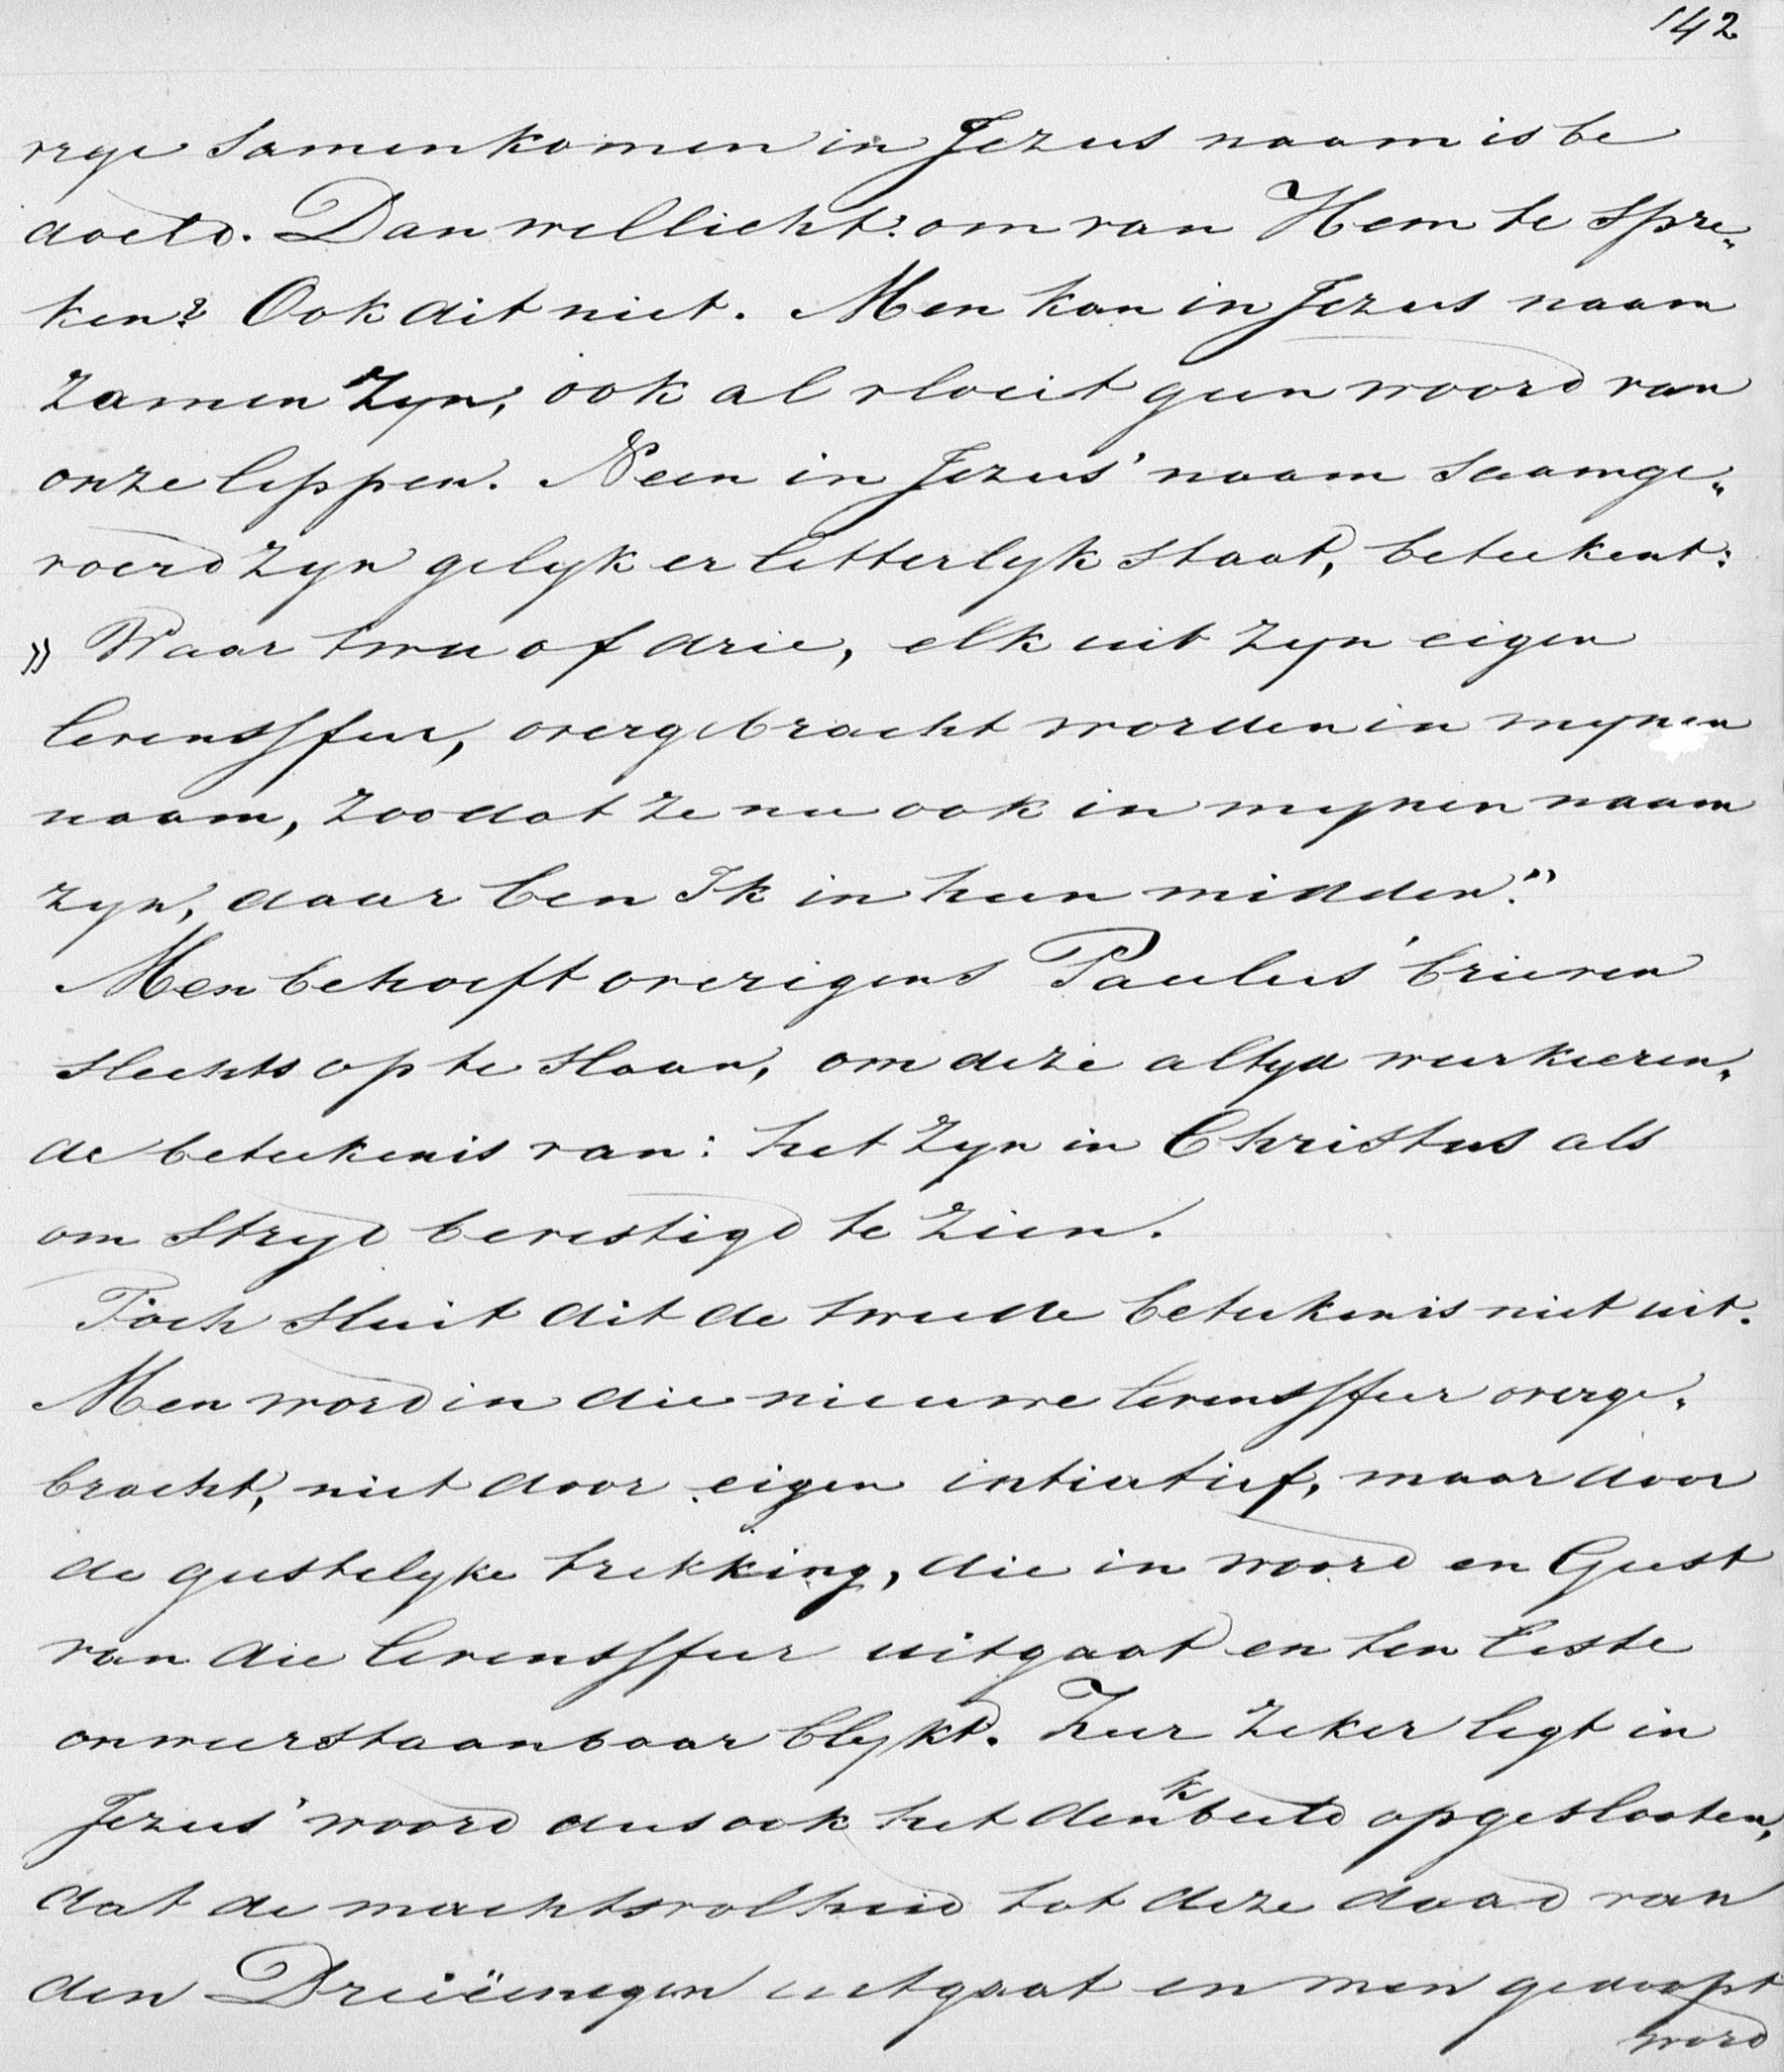 142
rege samenkomen in Jezus naam is be
doeld. Dan wellicht: om van Hem te spre„
ken? Ook dit niet. Men kan in Jezus naam
zamen zyn, ook al vloeit geen woord van
onze lippen. Neen in Jezus' naam saamge„
voerd zyn gelyk er letterlyk staat, beteekent:
» Waar twee of drie, elk uit zyn eigen
levenssfeer, overgebracht worden in mynen
naam, zoodat ze nu ook in mynen naam
zyn, daar ben Ik in hun midden."
Men behoeft overigens Paulus' brieven
slechts op te slaan, om deze altyd weerkeeren„
de beteekenis van: het zyn in Christus als
om stryd bevestigd te zien.
Toch sluit dit de tweede beteekenis niet uit.
Men word in die nieuwe levenssfeer overge„
bracht, niet door eigen intiatief, maar door
de geestelyke trekking, die in woord en Geest
van die levenssfeer uitgaat en ten leste
onweerstaanbaar blykt. Zeer zeker ligt in
Jezus' woord dus ook het denkbeeld opgeslooten,
dat de machtsvolheid tot deze daad van
den Drieëenegen uitgaat en men gedoopt
word